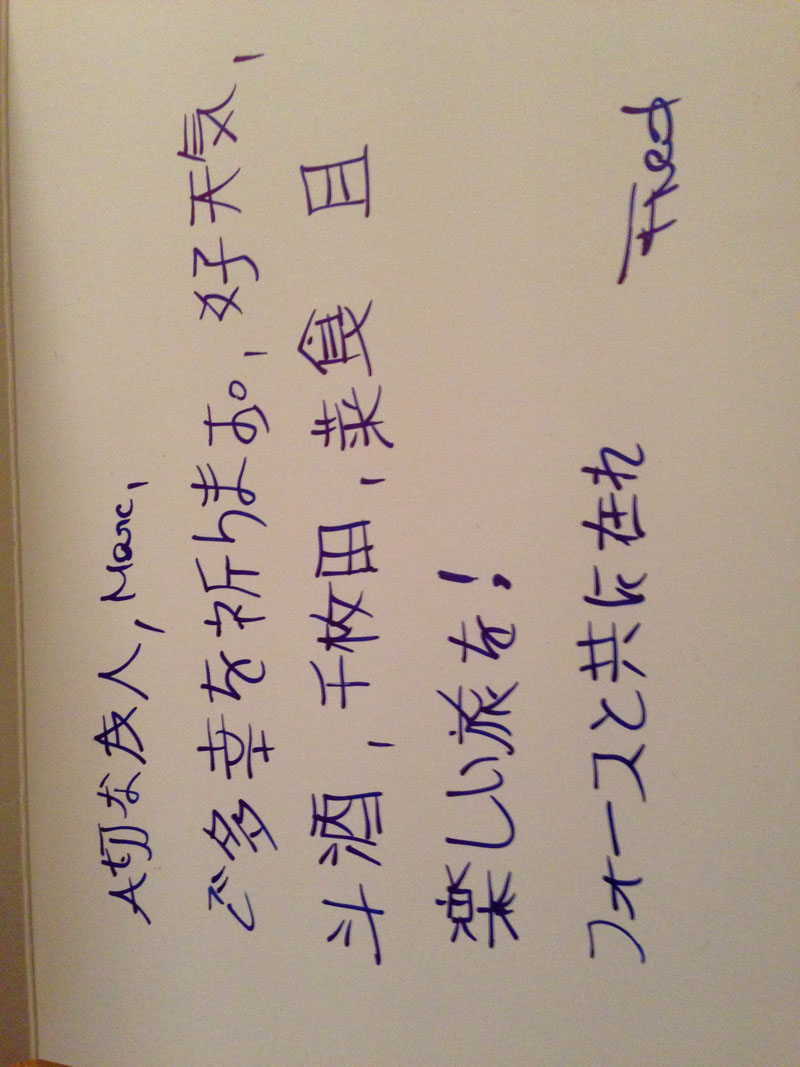 大切な友人, Marc,
ご多幸を祈ります。, 好天気,
斗酒, 千枚田, 菜食 目
楽しい旅を!
フォースと共に在れ
Fred